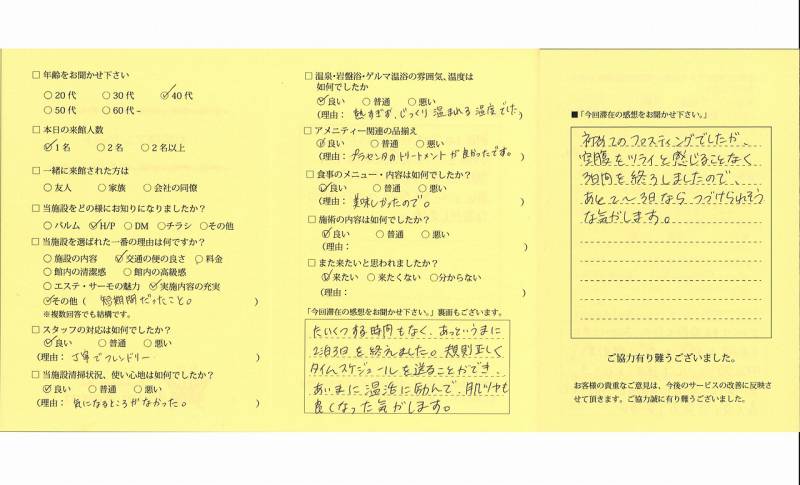 □ 年齢をお聞かせ下さい
○ 20代 ○ 30代 ○ 40代
○ 50代 ○ 60代 -
□ 本日の来館人数
○ 1名 ○ 2名 ○ 2名以上
□ 一緒に来館された方は
○ 友人 ○ 家族 ○ 会社の同僚
□ 当施設をどの様にお知りになりましたか？
○ パルム ○ H/P ○ DM ○ チラシ ○ その他
□ 当施設を選ばれた一番の理由は何ですか？
○ 施設の内容 ○ 交通の便の良さ ○ 料金
○ 館内の清潔感 ○ 館内の高級感
○ エステ・サーモの魅力 ○ 実施内容の充実
○ その他（ 短期間だったこと。 ）
※複数回答でも結構です。
□ スタッフの対応は如何でしたか？
○ 良い ○ 普通 ○ 悪い
（理由： 丁寧でフレンドリー ）
□ 当施設清掃状況、使い心地は如何でしたか？
○ 良い ○ 普通 ○ 悪い
（理由： 気になるところがなかった。 ）
□ 温泉・岩盤浴・ゲルマ温浴の雰囲気、温度は
如何でしたか
○ 良い ○ 普通 ○ 悪い
（理由： 熱すぎず、じっくり温まれる温度でした ）
□ アメニティー関連の品揃え
○ 良い ○ 普通 ○ 悪い
（理由： プラセンタのトリートメントが良かったです。 ）
□ 食事のメニュー・内容は如何でしたか？
○ 良い ○ 普通 ○ 悪い
（理由： 美味しかったので。 ）
□ 施術の内容は如何でしたか？
○ 良い ○ 普通 ○ 悪い
（理由： ）
□ また来たいと思われましたか？
○ 来たい ○ 来たくない ○ 分からない
（理由： ）
「今回滞在の感想をお聞かせ下さい。」裏面もございます。
たいくつする時間もなく、あっというまに
2泊3日を終えました。規則正しく
タイムスケジュールを送ることができ、
あいまに温浴に励んで、肌ツヤも
良くなった気がします。
■「今回滞在の感想をお聞かせ下さい。」
初めてのファスティングでしたが、
空腹をツライと感じることなく
3日間を終うしましたので、
あと2〜3日なら つづけられそう
な気がします。
ご協力有り難うございました。
お客様の貴重なご意見は、今後のサービスの改善に反映さ
せて頂きます。ご協力誠に有り難うございました。